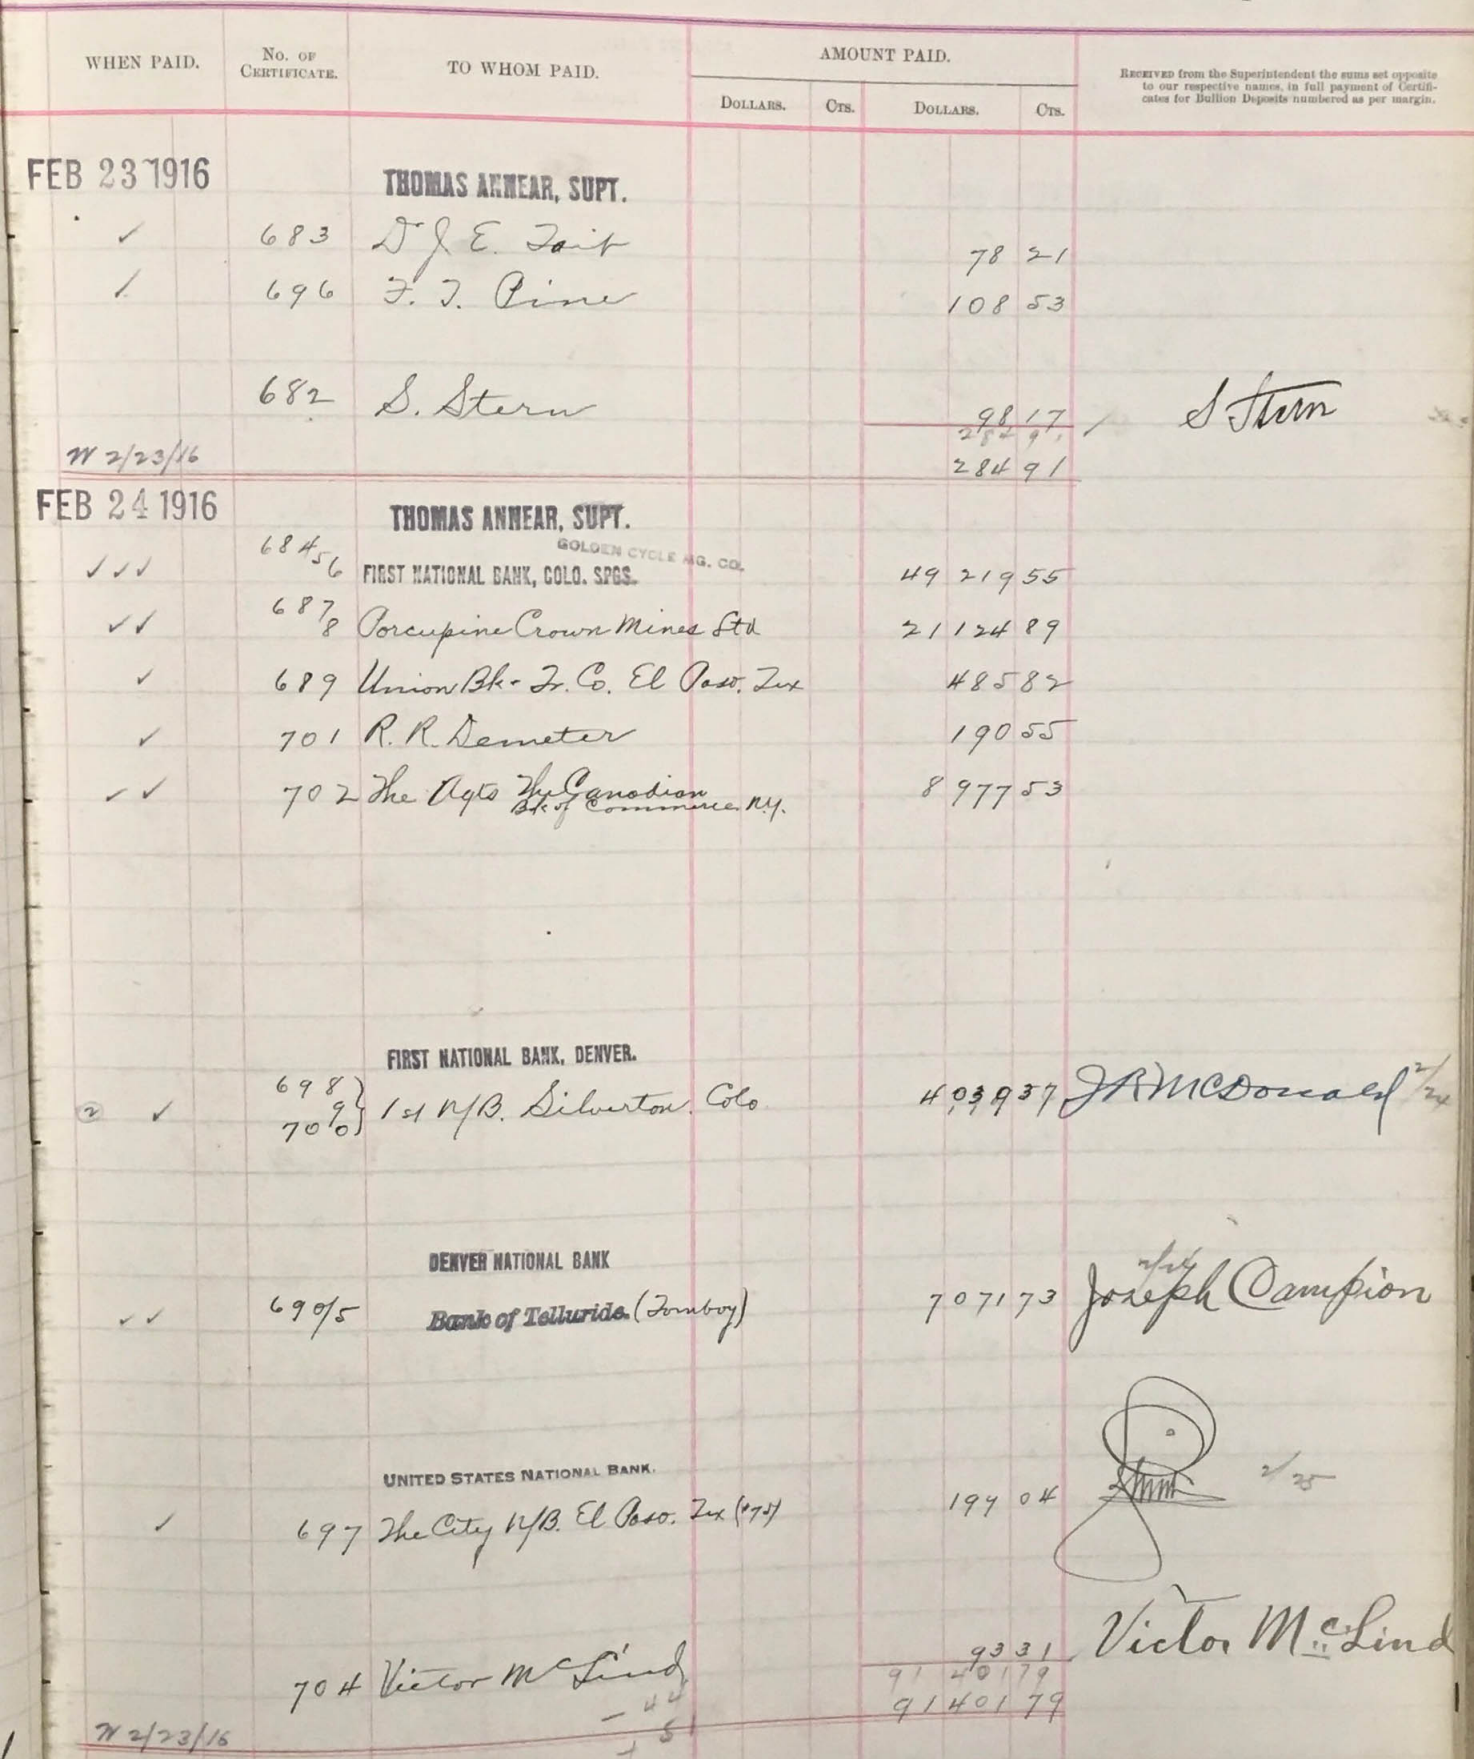 WHEN PAID. No. of Certificate. TO WHOM PAID. AMOUNT PAID. Dollars. Cts. Dollars. Cts.
Received from the Superintendent the sums set opposite
to our respective names, in full payment of Certifi-
cates for Bullion Deposits numbered as per margin.
FEB 23 1916 THOMAS ANNEAR, SUPT.
✓ 683 D J. E. Tait 78 21
✓ 696 F. T. Pine 108 53
682 S. Stern 98 17 / S Stern
284 91
2/23/16 284 91
FEB 24 1916 THOMAS ANNEAR, SUPT.
GOLDEN CYCLE MG. CO.
✓✓✓ 684 5 6 FIRST NATIONAL BANK, COLO. SPGS. 49 219 55
✓✓ 687 8 Porcupine Crown Mines Ltd 21 124 89
✓ 689 Union Bk - Tr. Co. El Paso. Tex 485 82
✓ 701 R. R. Demeter 190 55
✓✓ 702 The Agts The Canadian Bk of Commerce N.Y. 8 977 53
FIRST NATIONAL BANK, DENVER.
② ✓ 698 9 700 } 1st N/B. Silverton. Colo 4 039 37 J R McDonald 2/24
DENVER NATIONAL BANK
✓✓ 690/5 Bank of Telluride. (Tomboy) 7 071 73 Joseph Campion 2/24
UNITED STATES NATIONAL BANK.
✓ 697 The City N/B. El Paso. Tex 04 2/25
704 Victor McLind 93 31 Victor McLind
91 401 79
91 401 79
2/23/16